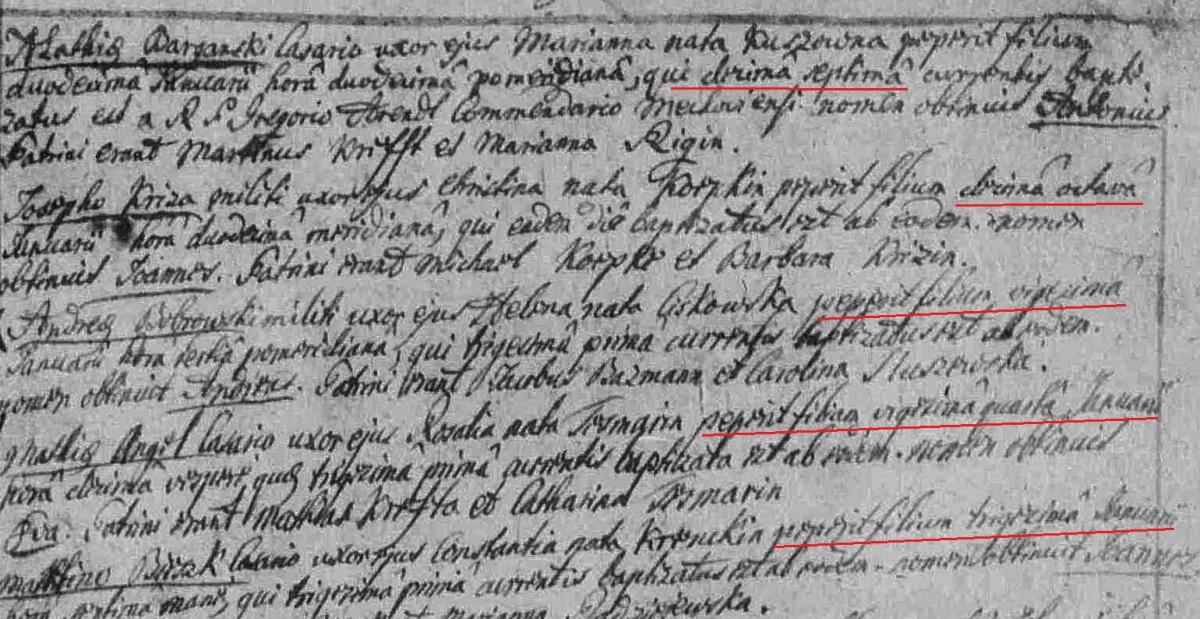 Mathiæ Barganski Casario uxor ejus Marianna nata Kuszowna peperit filium
duodecimâ Januarii horâ duodecimâ pomeridianâ, qui decimâ septimâ currentis bapti-
zatus est a R. P. Gregorio Arendt Commendario nomen obtinuit Antonius
Patrini erant Martinus Krifft et Marianna Rigin.
Josepho Kriza militi uxor ejus Christina nata Korpkin peperit filium decimâ octavâ
Januarii horâ duodecimâ meridianâ, qui eadem die baptizatus est ab eodem. nomen
obtinuit Joannes. Patrini erant Michael Korpke et Barbara Krizin.
Andreæ Bobrowski militi uxor ejus Helena nata Liskowska peperit filium vigesimâ
Januarii hora tertiâ pomeridiana, qui trigesimâ primâ currentis baptizatus est ab eodem.
nomen obtinuit Andreas. Patrini erant Jacobus Bazmann et Carolina Sluszewska.
Mathiæ Angel Casario uxor ejus Rosalia nata Tesmarin peperit filiam vigesimâ quartâ Januarii
horâ decimâ vesperi, quæ trigesimâ primâ currentis baptizata est ab eodem. nomen obtinuit
Eva. Patrini erant Mathias Krefta et Catharina Tesmarin
Martino Casario uxor ejus Constantia nata Krenckin peperit filium trigesimâ Januarii
horâ septima mane, qui trigesimâ primâ currentis baptizatus est ab eodem. nomen obtinuit Joannes
erant Marianna